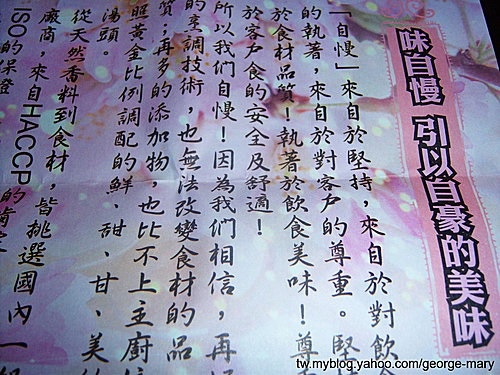 味自慢 引以自豪的美味
「自慢」來自於堅持,來自於對飲食
的執著,來自於對客戶的尊重。堅持
於食材品質!執著於飲食美味!尊
於客戶食的安全及舒適!
所以我們自慢!因為我們相信,再
的烹調技術,也無法改變食材的品
質;再多的添加物,也比不上主廚
照黃金比例調配的鮮、甜、甘、美
湯頭。
從天然香料到食材,皆挑選國內一
廠商,來自HACCP的
ISO的保證
tw.myblog.yahoo.com/george-mary